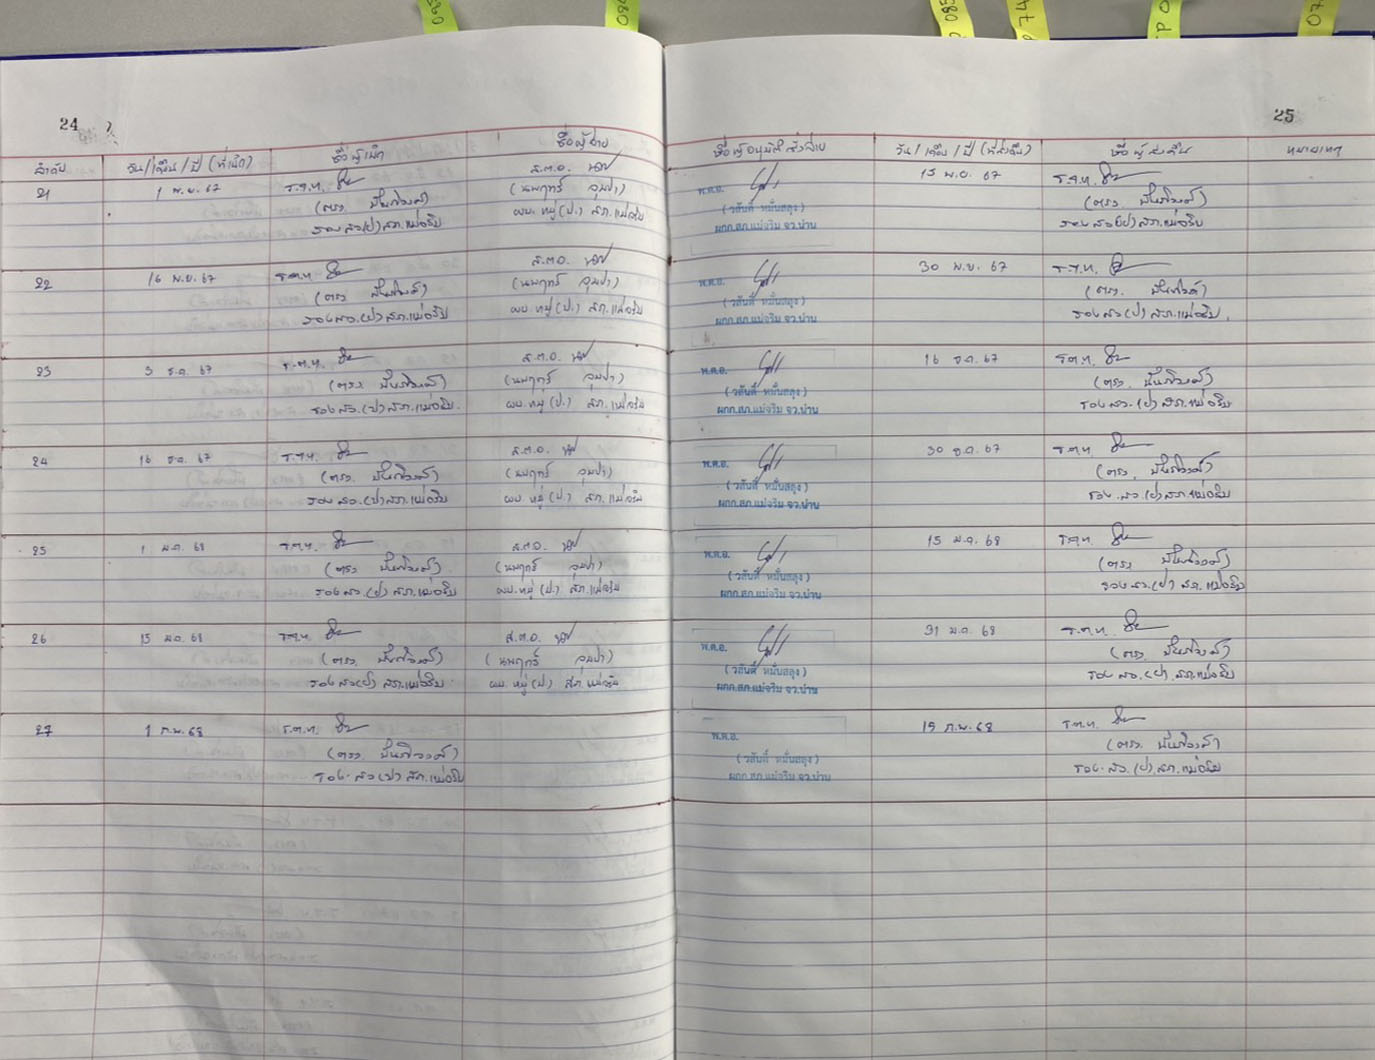 24
25
ลำดับ วัน/เดือน/ปี (ที่เบิก) ชื่อผู้เบิก ชื่อผู้จ่าย ชื่อผู้อนุมัติสั่งจ่าย วัน/เดือน/ปี (ที่ส่งคืน) ชื่อผู้ส่งคืน หมายเหตุ
21 1 พ.ย. 67 ร.ต.ท. ส.ต.อ. พ.ต.อ. 15 พ.ย. 67 ร.ต.ท.
(นพฤทธิ์ อุมปา) (วสันต์ หมั่นสลุง)
รอง สว.(ป) สภ.แม่จริม ผบ.หมู่ (ป.) สภ.แม่จริม ผกก.สภ.แม่จริม จว.น่าน รอง สว.(ป) สภ.แม่จริม
22 16 พ.ย. 67 ร.ต.ท. ส.ต.อ. พ.ต.อ. 30 พ.ย. 67 ร.ต.ท.
(นพฤทธิ์ อุมปา) (วสันต์ หมั่นสลุง)
รอง สว.(ป) สภ.แม่จริม ผบ.หมู่ (ป.) สภ.แม่จริม ผกก.สภ.แม่จริม จว.น่าน รอง สว.(ป) สภ.แม่จริม
23 ธ.ค. 67 ร.ต.ท. ส.ต.อ. พ.ต.อ. 16 ธ.ค. 67 ร.ต.ท.
(นพฤทธิ์ อุมปา) (วสันต์ หมั่นสลุง)
รอง สว.(ป) สภ.แม่จริม ผบ.หมู่ (ป.) สภ.แม่จริม ผกก.สภ.แม่จริม จว.น่าน รอง สว.(ป) สภ.แม่จริม
24 16 ธ.ค. 67 ร.ต.ท. ส.ต.อ. พ.ต.อ. 30 ธ.ค. 67 ร.ต.ท.
(นพฤทธิ์ อุมปา) (วสันต์ หมั่นสลุง)
รอง สว.(ป) สภ.แม่จริม ผบ.หมู่ (ป.) สภ.แม่จริม ผกก.สภ.แม่จริม จว.น่าน รอง สว.(ป) สภ.แม่จริม
25 1 ม.ค. 68 ร.ต.ท. ส.ต.อ. พ.ต.อ. 15 ม.ค. 68 ร.ต.ท.
(นพฤทธิ์ อุมปา) (วสันต์ หมั่นสลุง)
รอง สว.(ป) สภ.แม่จริม ผบ.หมู่ (ป.) สภ.แม่จริม ผกก.สภ.แม่จริม จว.น่าน รอง สว.(ป) สภ.แม่จริม
26 15 ม.ค. 68 ร.ต.ท. ส.ต.อ. พ.ต.อ. 31 ม.ค. 68 ร.ต.ท.
(นพฤทธิ์ อุมปา) (วสันต์ หมั่นสลุง)
รอง สว.(ป) สภ.แม่จริม ผบ.หมู่ (ป.) สภ.แม่จริม ผกก.สภ.แม่จริม จว.น่าน รอง สว.(ป) สภ.แม่จริม
27 1 ก.พ. 68 ร.ต.ท. พ.ต.อ. 15 ก.พ. 68 ร.ต.ท.
(วสันต์ หมั่นสลุง)
รอง สว.(ป) สภ.แม่จริม ผกก.สภ.แม่จริม จว.น่าน รอง สว.(ป) สภ.แม่จริม